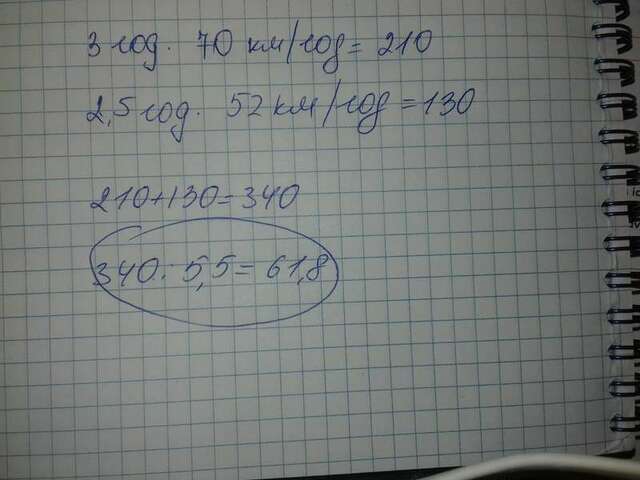 3 год. 70 км/год = 210
2,5 год. 52 км/год = 130
210+130=340
340 : 5,5 = 61,8